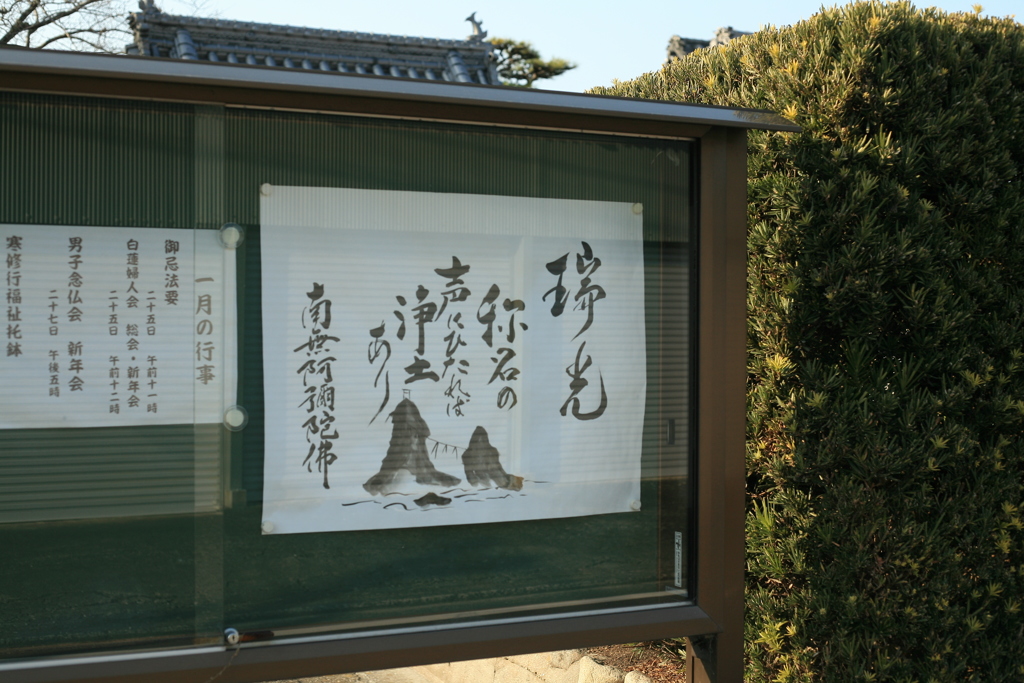 瑞光
称名の
声にひたれば
浄土
あり
南無阿彌陀佛
一月の行事
御忌法要
二十五日 午前十一時
白蓮婦人会 総会・新年会
二十五日 午前十二時
男子念仏会 新年会
二十七日 午後五時
寒修行福祉托鉢